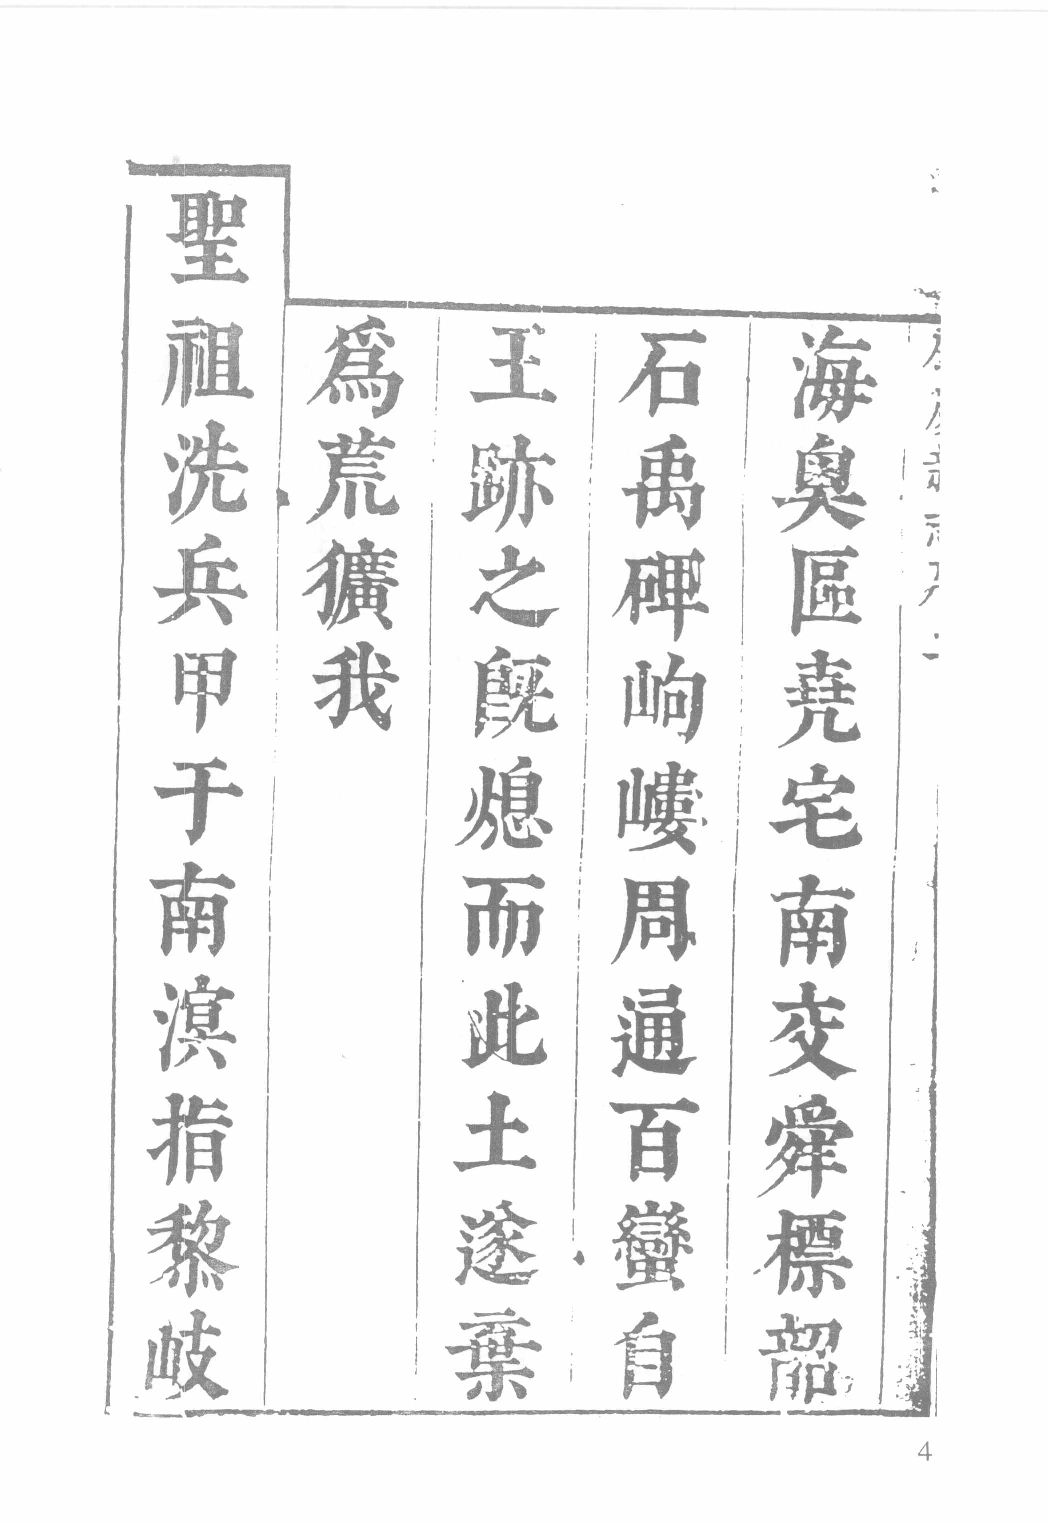 海奧區堯宅南交舜標韶
石禹碑岣嶁周通百蠻自
王跡之旣熄而此土遂葉
爲荒獷我
聖祖洗兵甲于南溟指黎岐
4